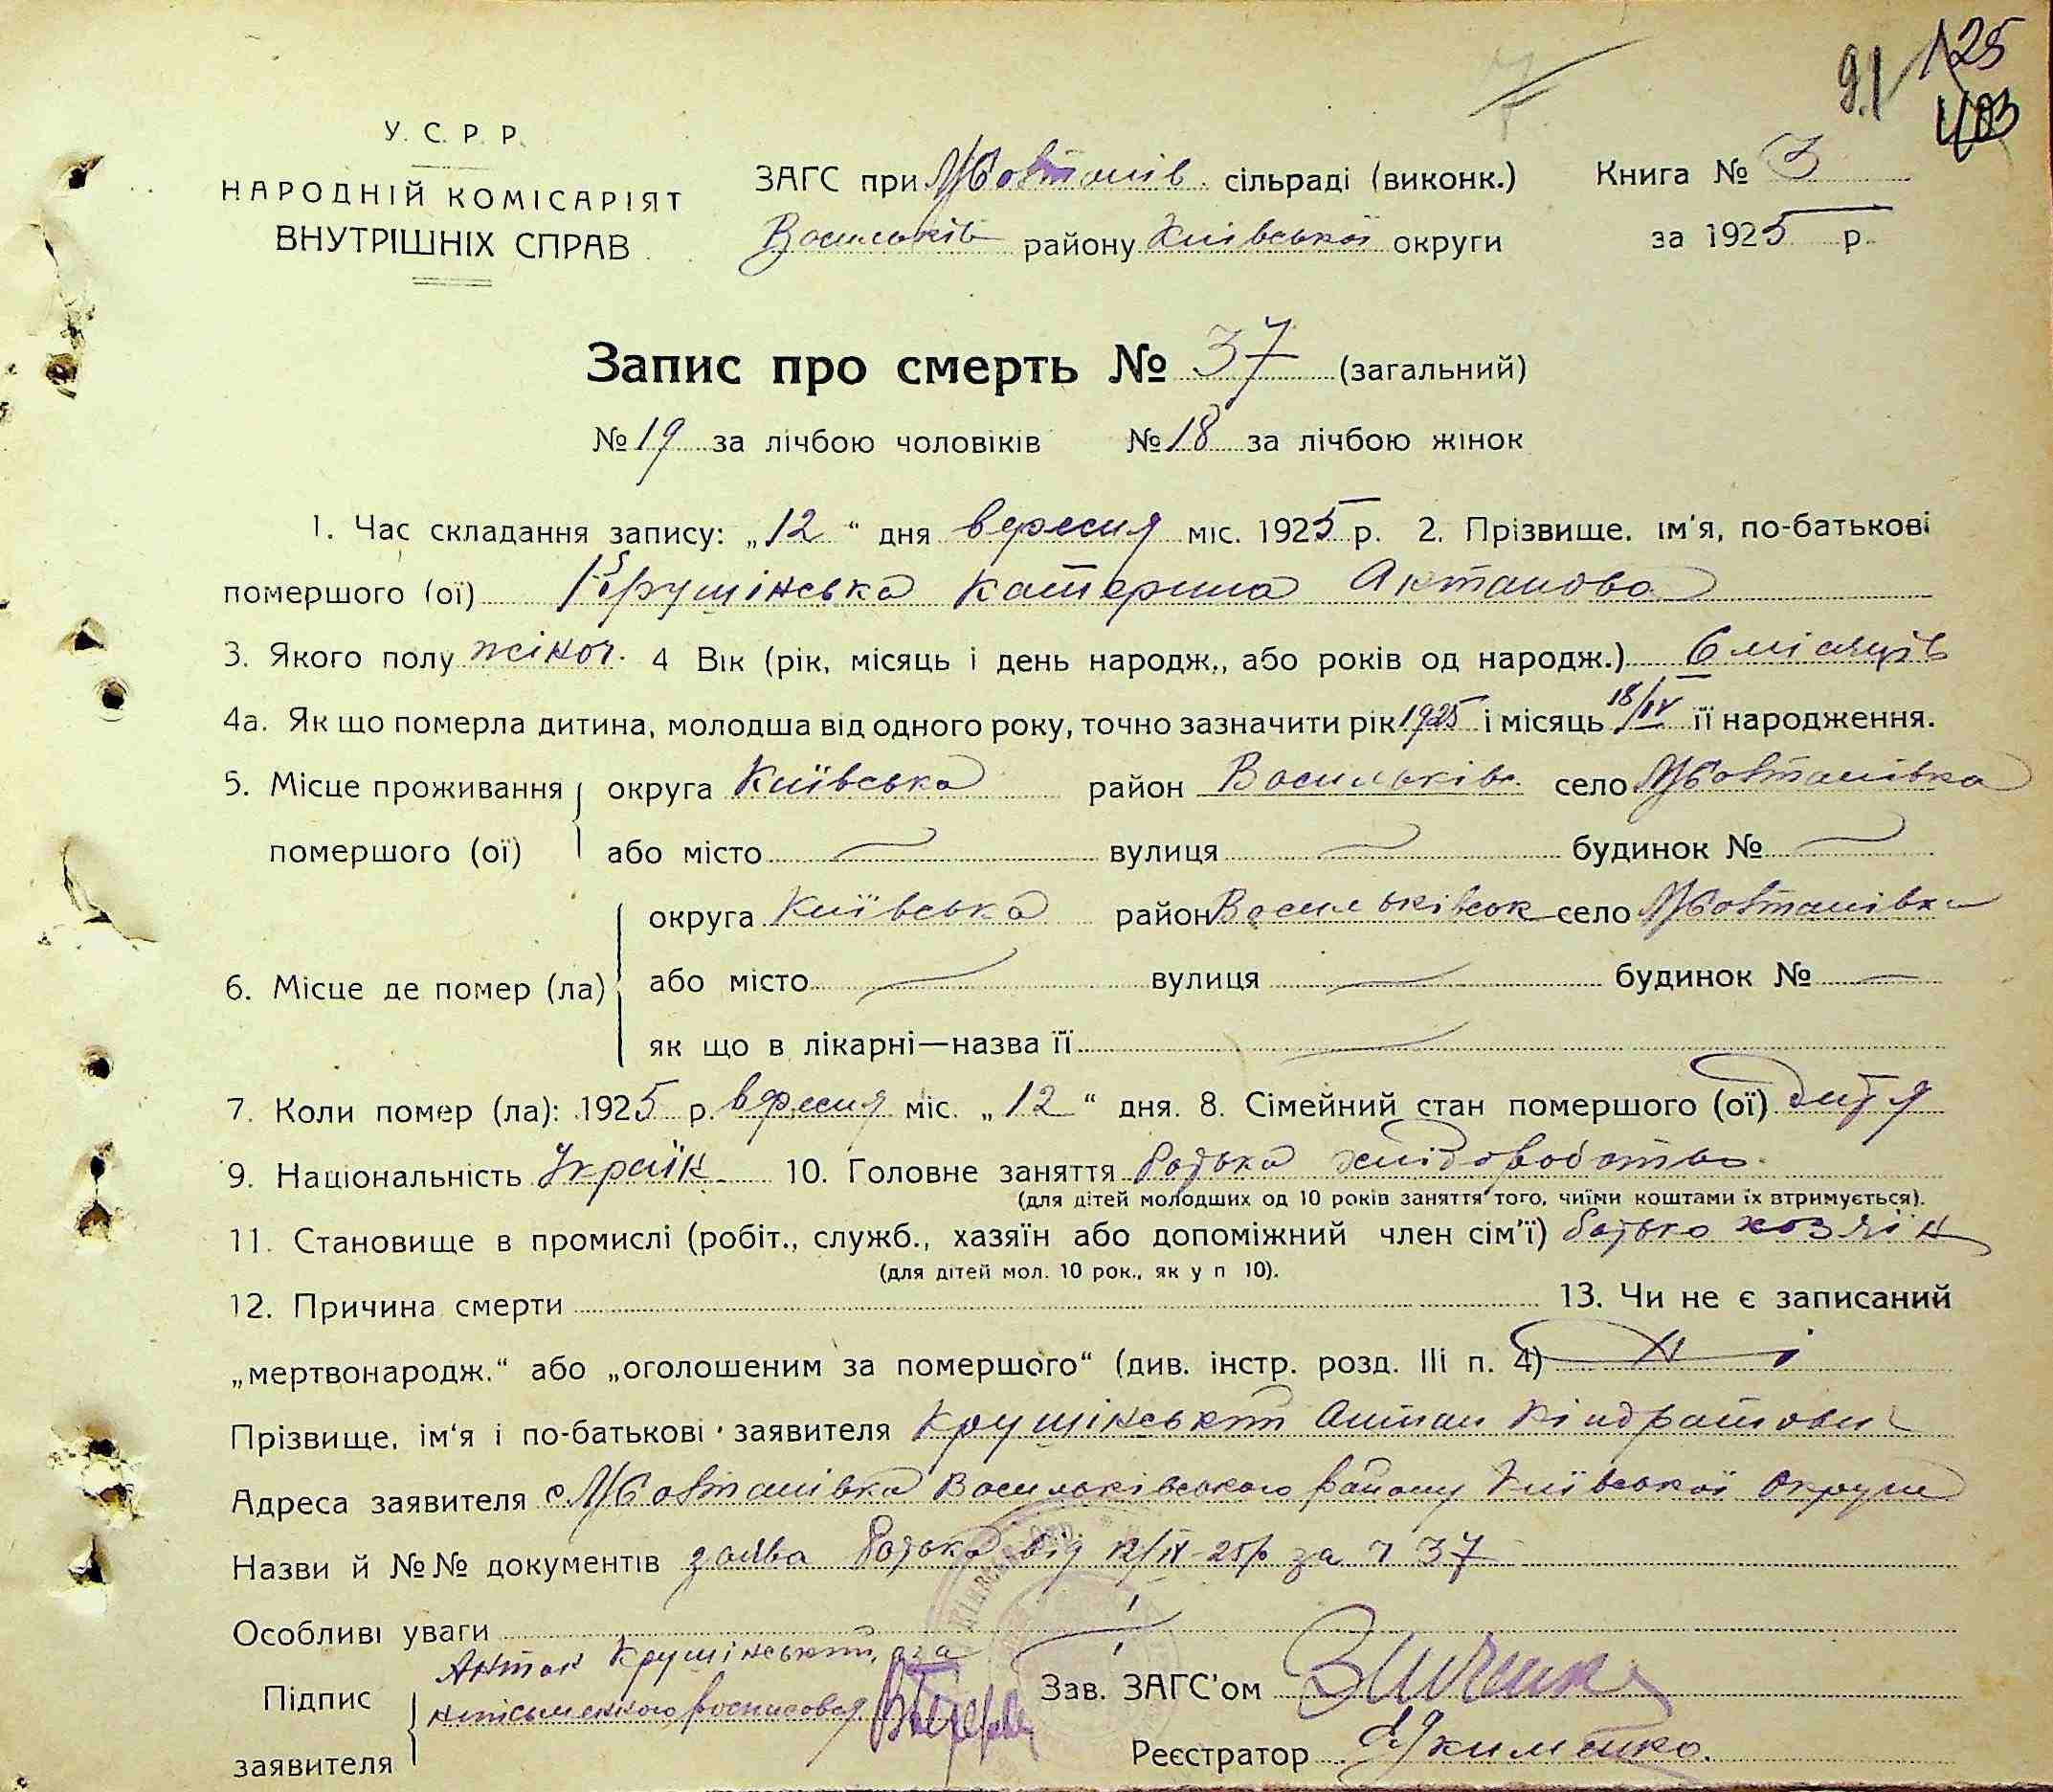 91 125
103
У. С. Р. Р.
НАРОДНІЙ КОМІСАРІЯТ
ВНУТРІШНІХ СПРАВ
ЗАГС при Жовтанів. сільраді (виконк.) Книга № 3
Васильків району Київської округи за 1925 р.
Запис про смерть № 37 (загальний)
№ 19 за лічбою чоловіків № 18 за лічбою жінок
1. Час складання запису: „12“ дня вересня міс. 1925 р. 2. Прізвище, ім'я, по-батькові
помершого (ої) Крушінська Катерина Антанова
3. Якого полу жіноч. 4 Вік (рік, місяць і день народж., або років од народж.) 6 місяців
4а. Як що померла дитина, молодша від одного року, точно зазначити рік 1925 і місяць 18/IV її народження.
5. Місце проживання округа Київська район Васильків. село Жовтанівка
помершого (ої) або місто вулиця будинок №
округа Київська район Васильківськ село Жовтанівка
6. Місце де помер (ла) або місто вулиця будинок №
як що в лікарні—назва її
7. Коли помер (ла): 1925 р. вересня міс. „12“ дня. 8. Сімейний стан помершого (ої) дитя
9. Національність Україн. 10. Головне заняття батька хліборобство.
(для дітей молодших од 10 років заняття того, чиїми коштами їх втримується).
11. Становище в промислі (робіт., служб., хазяїн або допоміжний член сім'ї) батько хозяїн
(для дітей мол. 10 рок., як у п 10).
12. Причина смерти 13. Чи не є записаний
„мертвонародж.“ або „оголошеним за помершого“ (див. інстр. розд. III п. 4) Ні
Прізвище, ім'я і по-батькові заявителя Крушінський Антан Кіндратови
Адреса заявителя с Жовтанівка Васильківського району Київської Округи
Назви й №№ документів заява батька від 12/IX-25р за ч 37
Особливі уваги
Антон Крушінський, а за
Підпис неписьменного росписався Зав. ЗАГС'ом
заявителя Реєстратор Якименко.